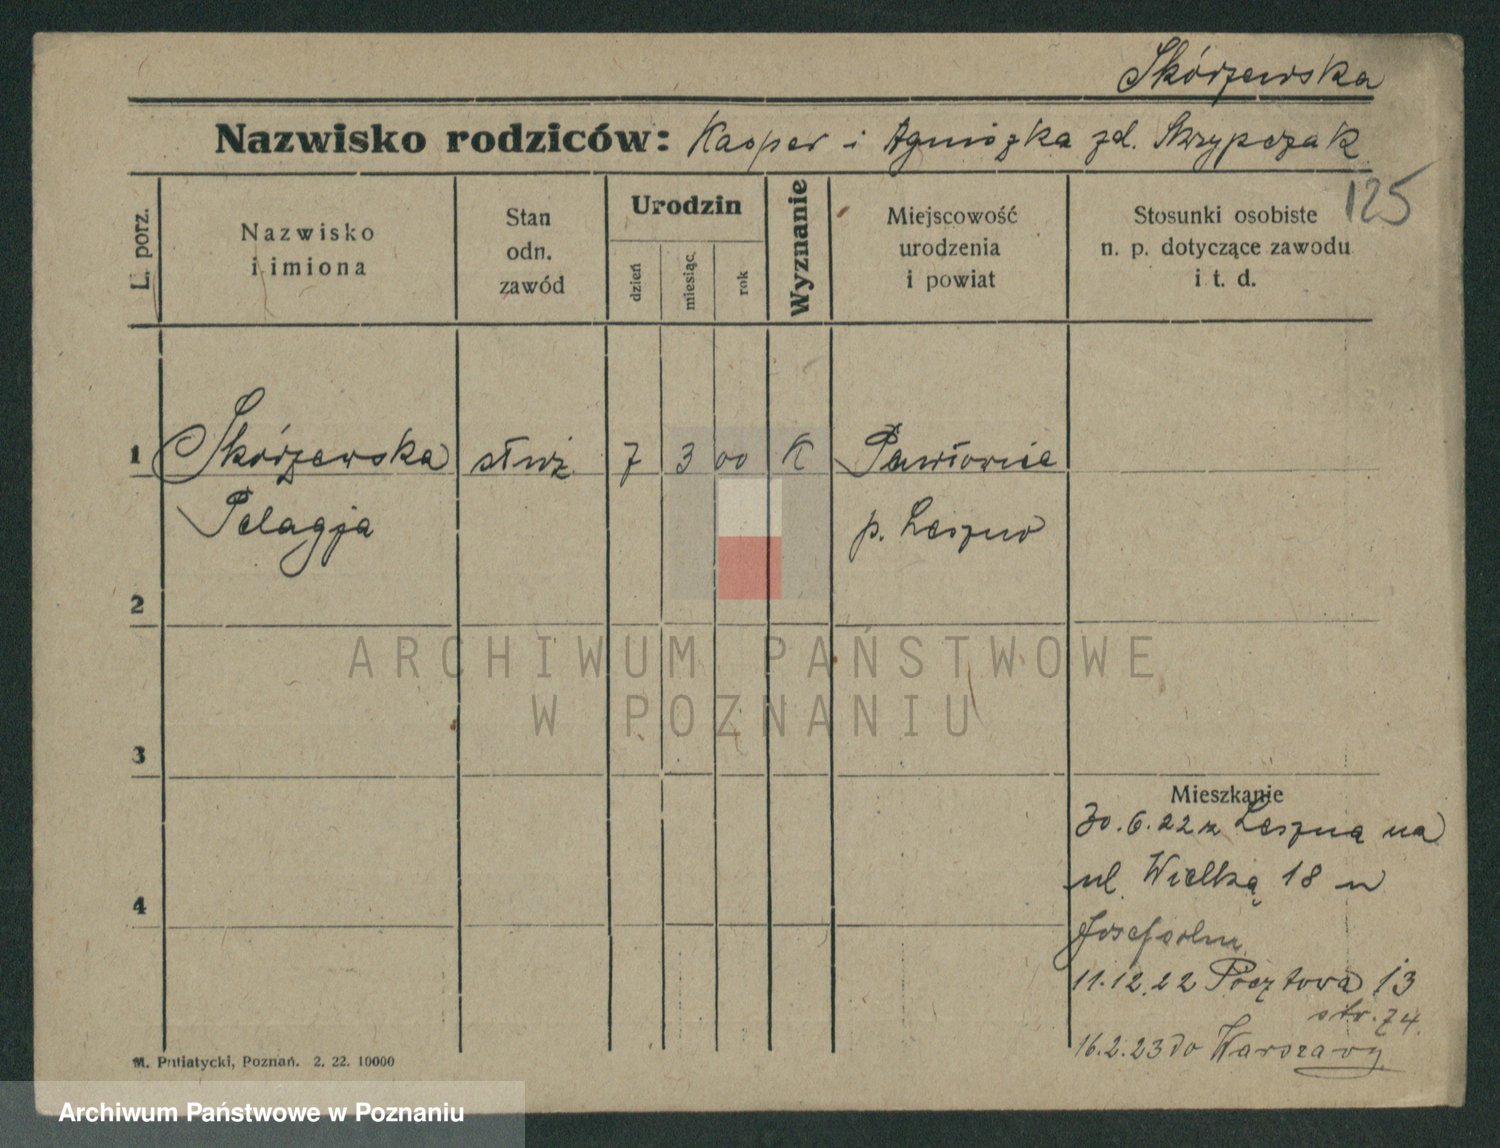 Skórzewska
Nazwisko rodziców: Kacper i Agniszka zd. Skrzypczak
125
L. porz.
Nazwisko
i imiona
Stan
odn.
zawód
Urodzin
dzień
miesiąc
rok
Wyznanie
Miejscowość
urodzenia
i powiat
Stosunki osobiste
n. p. dotyczące zawodu
i t. d.
1 Skórzewska służ. 7 3 00 K Pawłowice
Pelagja p. Leszno
2
3
4
Mieszkanie
30.6.22 z Leszna na
ul. Wielką 18 u
11.12.22 Pocztowa 13
str. 74
16.2.23 do Warszawy
M. Putiatycki, Poznań. 2. 22. 10000
ARCHIWUM PAŃSTWOWE
W POZNANIU
Archiwum Państwowe w Poznaniu